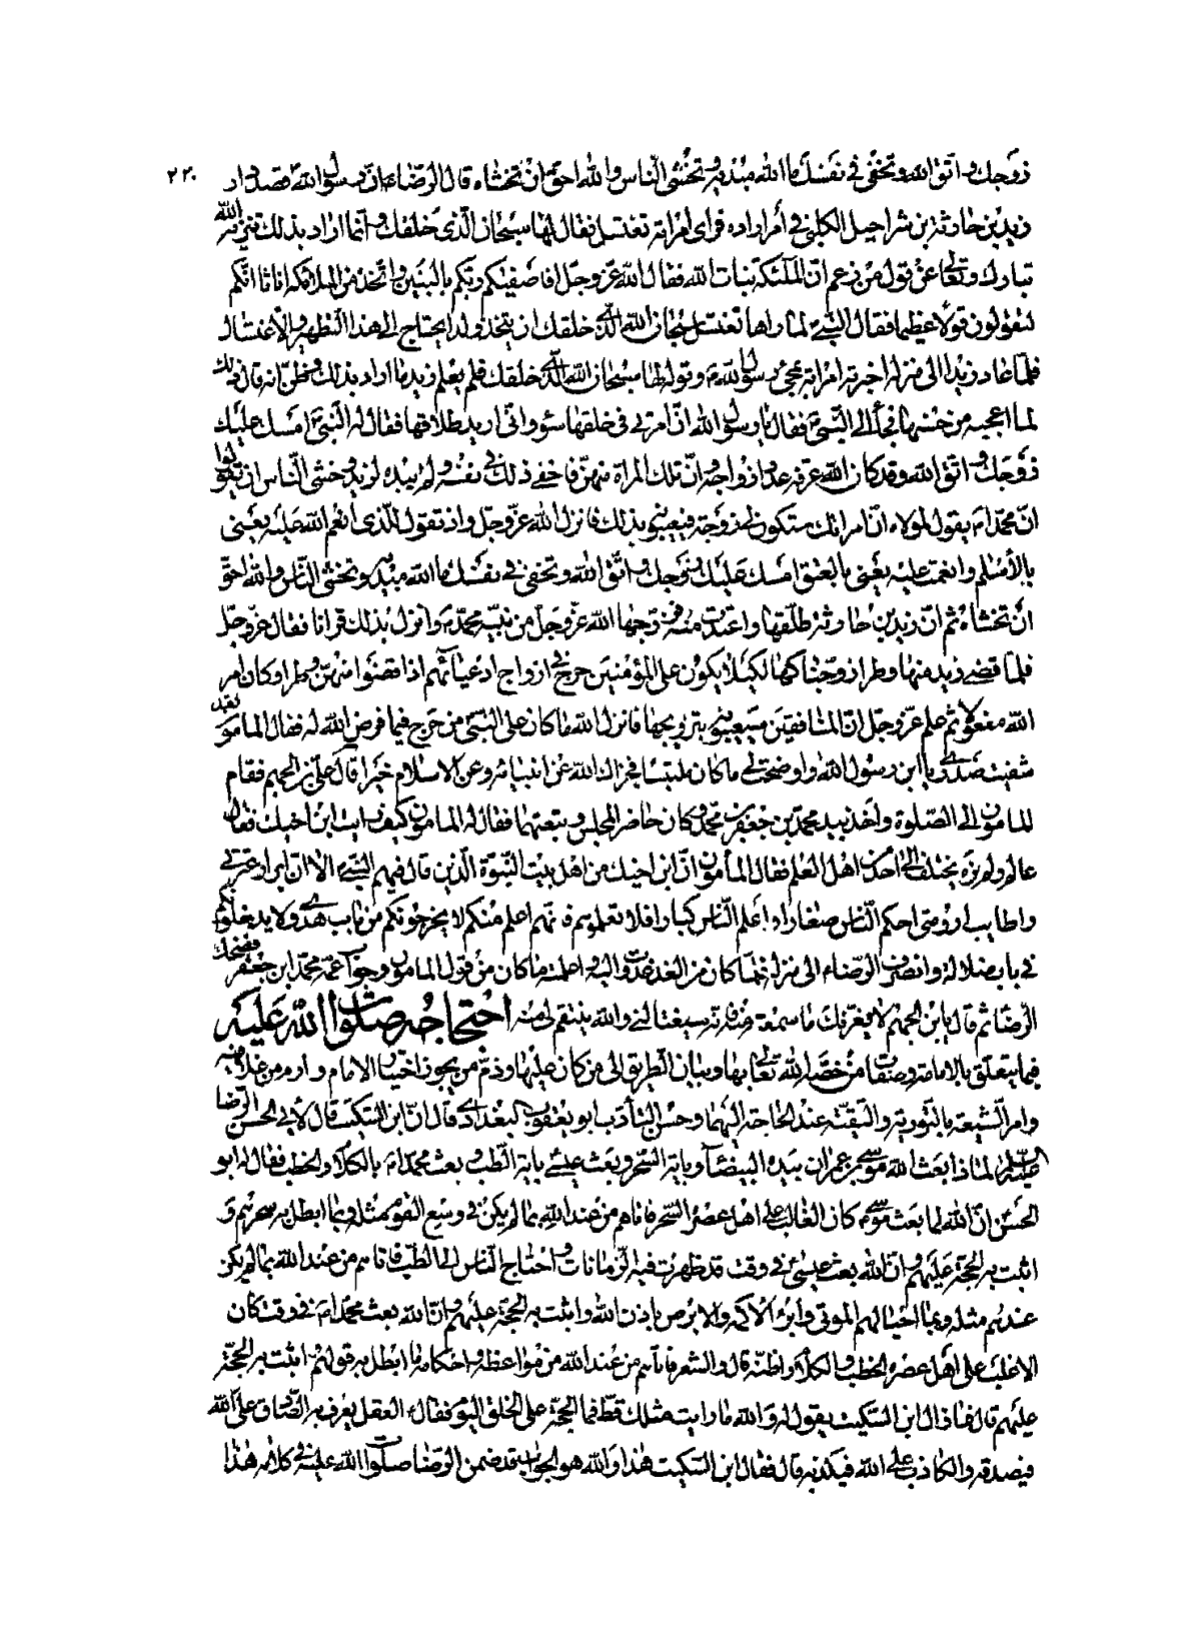 ٢٢٠
زوجك واتق الله وتخفى فى نفسك ما الله مبديه وتخشى الناس والله احق ان تخشاه قال الرضا ع ان رسول الله ص قصد دار
زيد بن حارثة بن شراحيل الكلبى فى امر اراده فراى امراته تغتسل فقال لها سبحان الذى خلقك وانما اراد بذلك تنزيه الله
تبارك وتعالى عن قول من زعم ان الملئكة بنات الله فقال الله عز وجل افاصفيكم ربكم بالبنين واتخذ من الملائكة اناثا انكم
لتقولون قولا عظيما فقال النبى ص لما راها تغتسل سبحان الله الذى خلقك ان يتخذ ولدا يحتاج الى هذا التطهير والاغتسال
فلما عاد زيد الى منزله اخبرته امراته بمجئ رسول الله ص وقوله لها سبحان الله الذى خلقك فلم يعلم زيد ما اراد بذلك وظن انه قال ذلك
لما اعجبه من حسنها فجاء الى النبى ص فقال يا رسول الله ان امرتى فى خلقها سوء وانى اريد طلاقها فقال له النبى ص امسك عليك
زوجك واتق الله وقد كان الله عرفه عدد ازواجه وان تلك المراة منهن فاخفى ذلك فى نفسه ولم يبده لزيد وخشى الناس ان يقولوا
ان محمدا ص يقول لمولاه ان امراتك ستكون لى زوجة فيعيبوه بذلك فانزل الله عز وجل واذ تقول للذى انعم الله عليه يعنى
بالاسلم وانعمت عليه يعنى بالعتق امسك عليك زوجك واتق الله وتخفى فى نفسك ما الله مبديه وتخشى الناس والله احق
ان تخشاه ثم ان زيد بن حارثة طلقها واعتدت منه فزوجها الله عز وجل من نبيه محمد ص وانزل بذلك قرانا فقال عز وجل
فلما قضى زيد منها وطرا زوجناكها لكيلا يكون على المؤمنين حرج فى ازواج ادعيائهم اذا قضوا منهن وطرا وكان امر
الله مفعولا ثم علم عز وجل ان المنافقين سيعيبوه بتزويجها فانزل الله ما كان على النبى من حرج فيما فرض الله له فقال المامون لقد
شفيت صدرى يا ابن رسول الله واوضحت لى ما كان ملتبسا فجزاك الله عن انبيائه وعن الاسلام خيرا قال على بن الجهم فقام
المامون الى الصلوة واخذ بيد محمد بن جعفر بن محمد وكان حاضر المجلس وتبعتهما فقال له المامون كيف رايت ابن اخيك فقال
عالم ولم نره يختلف الى احد من اهل العلم فقال المامون ان ابن اخيك من اهل بيت النبوة الذين قال فيهم النبى ص الا ان ابرار عترتى
واطايب ارومتى احكم الناس صغارا واعلم الناس كبارا فلا تعلموهم فانهم اعلم منكم لا يخرجونكم من باب هدى ولا يدخلونكم
فى باب ضلالة وانصرف الرضاء الى منزله فلما كان من الغد غدوت اليه واعلمته ما كان من قول المامون وجواب عمه محمد ابن جعفر فضحك
الرضا ثم قال يا بن الجهم لا يغرنك ما سمعته منه فانه سيغتالنى والله ينتقم لى منه احتجاجه صلوات الله عليه
فيما يتعلق بالامامة وصفات من خصه الله تعالى بها وبيان الطريق الى من كان عليها وذم من يجوز اختيار الامام
وامر الشيعة بالتورية والتقية عند الحاجة اليهما وحسن التادب ابو يعقوب البغدادى قال ان ابن السكيت قال لابى الحسن الرضا
عليه السلم لماذا بعث الله موسى بن عمران بيده البيضاء وباية السحر وبعث عيسى باية الطب وبعث محمدا ص بالكلام والخطب فقال له ابو
الحسن ان الله لما بعث موسى كان الغالب على اهل عصره السحر فاتاهم من عند الله بما لم يكن فى وسع القوم مثله وبما ابطل به سحرهم و
اثبت به الحجة عليهم وان الله بعث عيسى فى وقت قد ظهرت فيه الزمانات واحتاج الناس الى الطب فاتاهم من عند الله بما لم يكن
عندهم مثله وبما احيا لهم الموتى وابرء الاكمه والابرص باذن الله واثبت به الحجة عليهم وان الله بعث محمدا ص فى وقت كان
الاغلب على اهل عصره الخطب والكلام واظنه قال والشعر فاتاهم من عند الله من مواعظه واحكامه ما ابطل به قولهم واثبت به الحجة
عليهم قال فما زال ابن السكيت يقول له والله ما رايت مثلك قط فما الحجة على الخلق اليوم فقال ع العقل يعرف به الصادق على الله
فيصدقه والكاذب على الله فيكذبه قال فقال ابن السكيت هذا والله هو الجواب قد ضمن الرضا صلوات الله عليه فى كلامه هذا